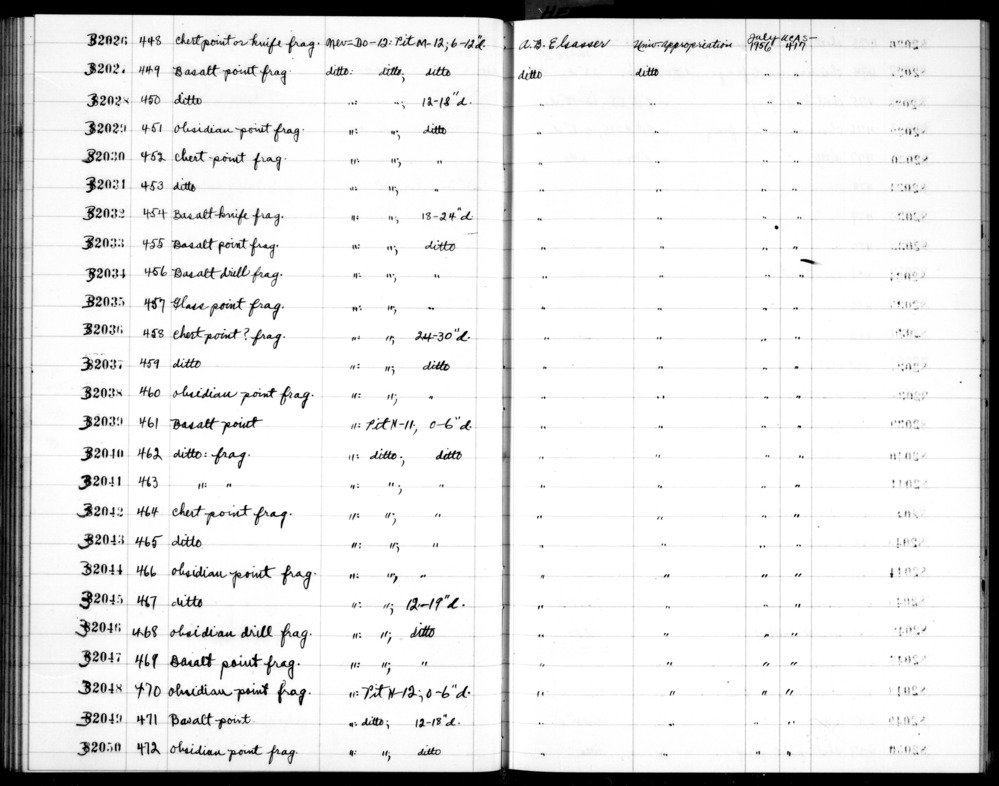 32026 448 chert point or knife frag. Nev=Do-12: Pit M-12; 6-12"d. A.B. Elsasser Univ. Appropriation July 1956 UCAS-417
32027 449 Basalt point frag. ditto: ditto; ditto ditto ditto " "
32028 450 ditto ": "; 12-18"d. " " " "
32029 451 obsidian point frag. ": "; ditto " " " "
32030 452 chert point frag. ": "; " " " " "
32031 453 ditto ": "; " " " " "
32032 454 Basalt knife frag. ": "; 18-24"d " " " "
32033 455 Basalt point frag. ": "; ditto " " " "
32034 456 Basalt drill frag. ": "; " " " " "
32035 457 Glass point frag. ": "; " " " " "
32036 458 chert point? frag. ": "; 24-30"d. " " " "
32037 459 ditto ": "; ditto " " " "
32038 460 obsidian point frag. ": "; " " " " "
32039 461 Basalt point ": Pit N-11, 0-6"d. " " " "
32040 462 ditto: frag. ": ditto; ditto " " " "
32041 463 ": " ": "; " " " " "
32042 464 chert point frag. ": "; " " " " "
32043 465 ditto ": "; " " " " "
32044 466 obsidian point frag. ": "; " " " " "
32045 467 ditto ": "; 12-19"d. " " " "
32046 468 obsidian drill frag. ": "; ditto " " " "
32047 469 Basalt point frag. ": "; " " " " "
32048 470 obsidian point frag. ": Pit N-12; 0-6"d. " " " "
32049 471 Basalt point ": ditto; 12-18"d. " " " "
32050 472 obsidian point frag. ": "; ditto " " " "